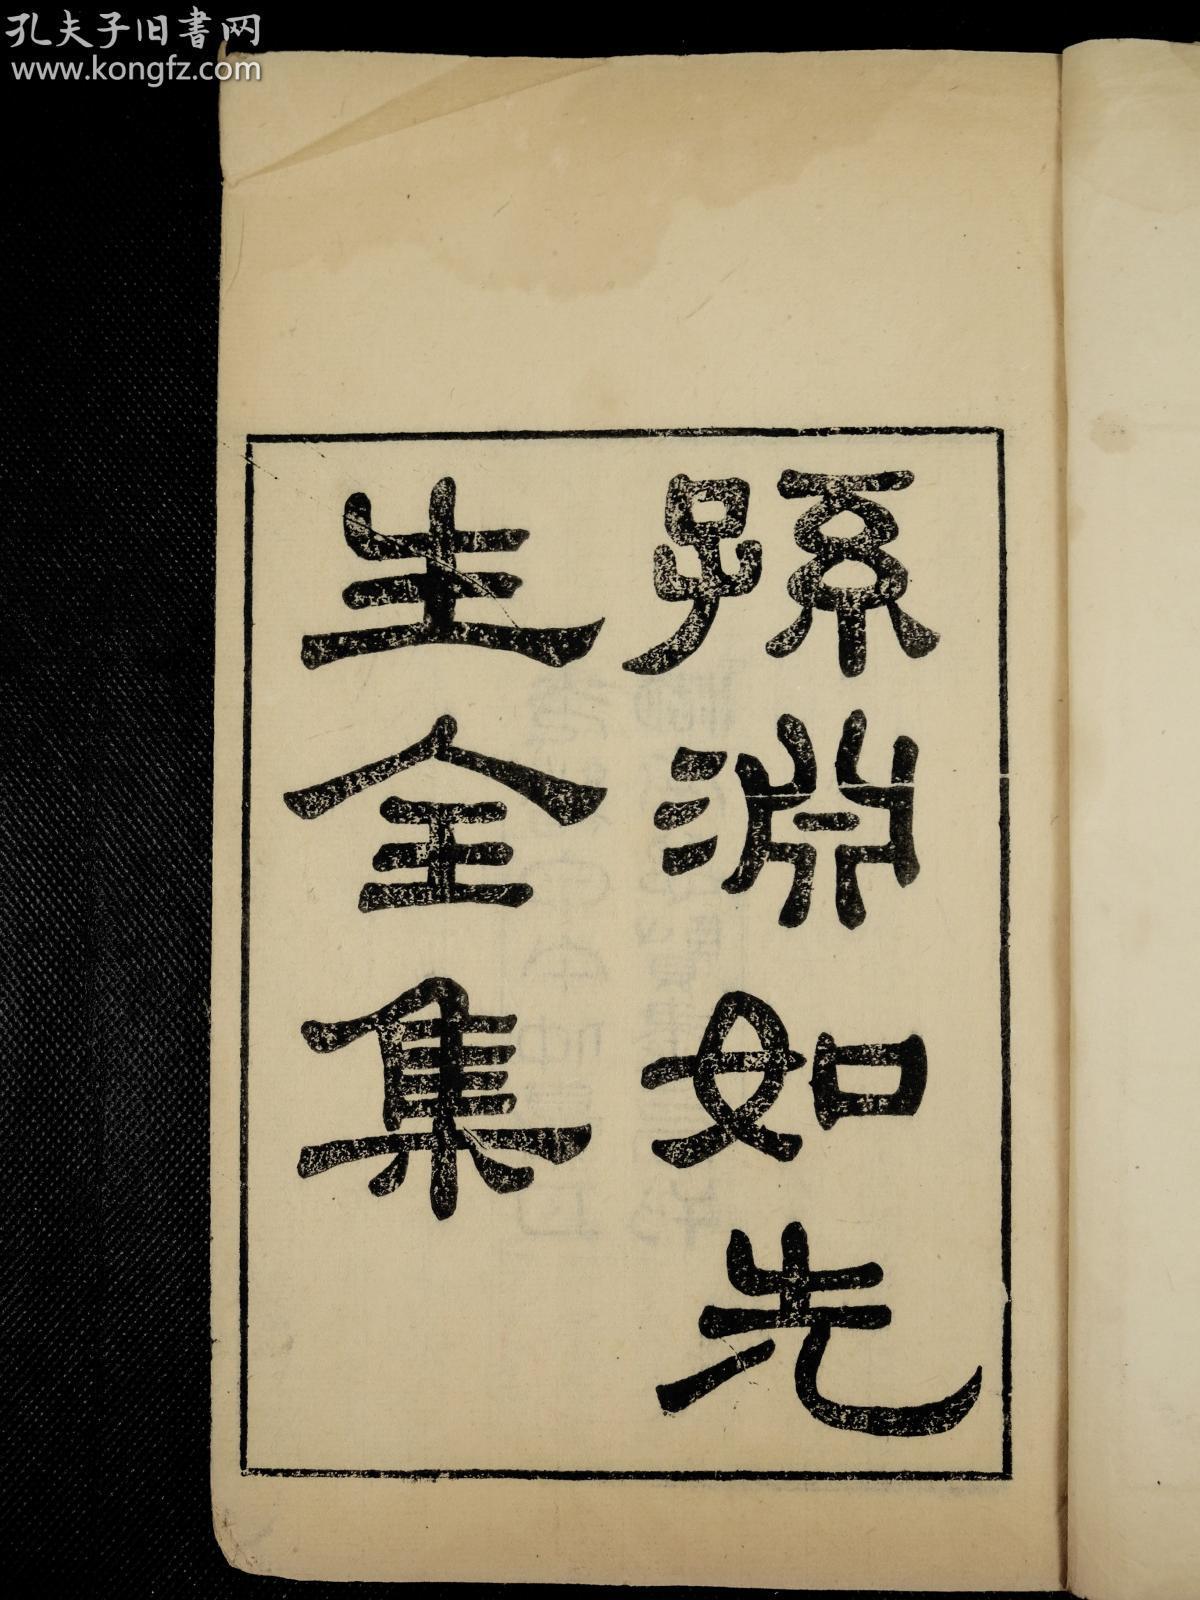 孔夫子旧書网
www.kongfz.com
孫淵如先
生全集